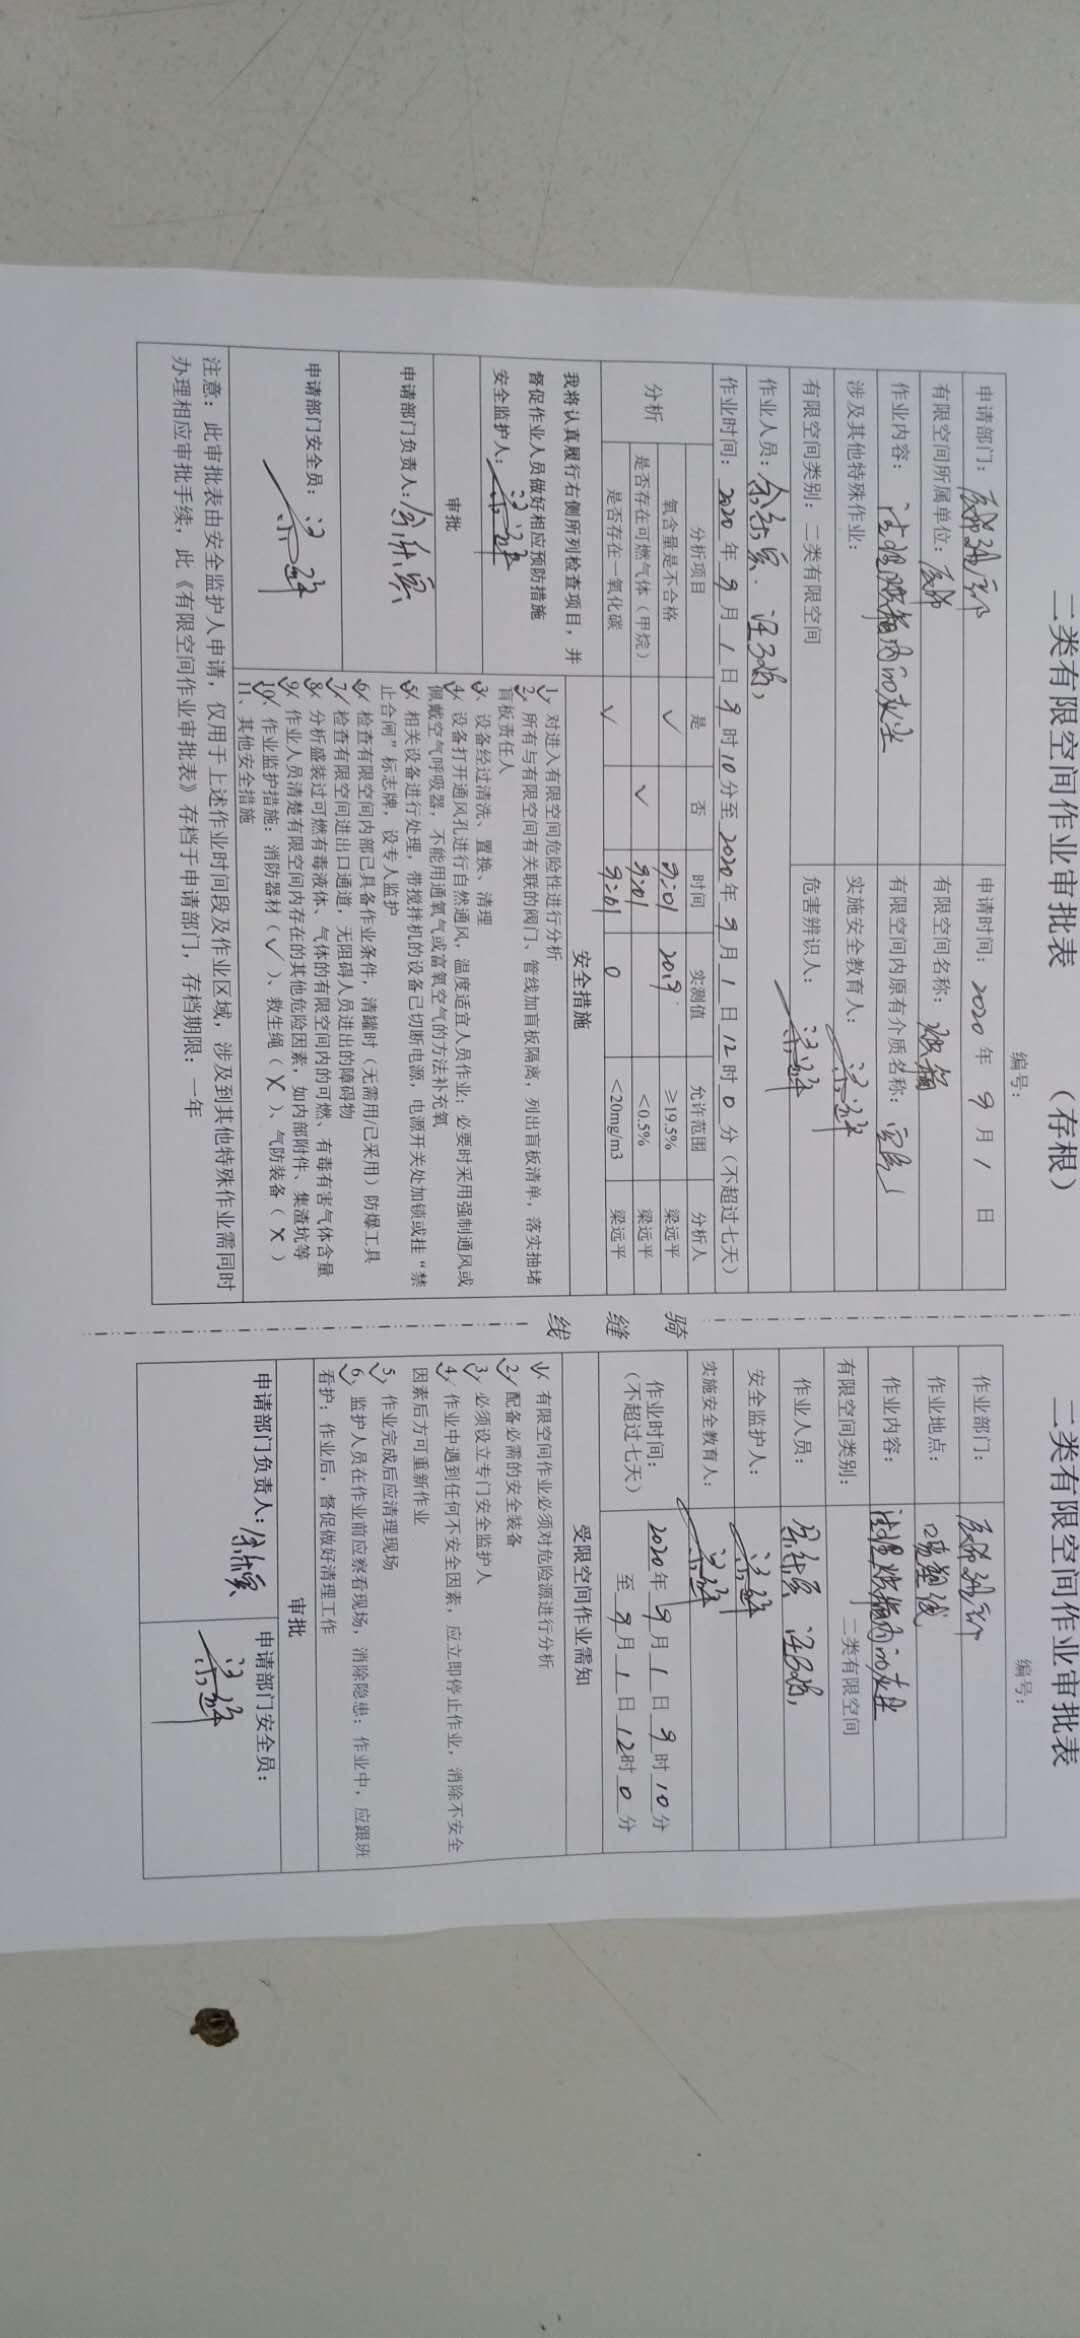 二类有限空间作业审批表 （存根）
编号：
申请部门： 申请时间：2020年 9月 1 日
有限空间所属单位： 有限空间名称：
作业内容： 有限空间内原有介质名称：
涉及其他特殊作业： 实施安全教育人：
有限空间类别：二类有限空间 危害辨识人：
作业人员：
作业时间：2020年9月1日9时10分至2020年9月1日12时0分（不超过七天）
分析 分析项目 是 否 时间 实测值 允许范围 分析人
氧含量是不合格 √ 9:01 20.9 ≥19.5% 梁远平
是否存在可燃气体（甲烷） √ 9:01 <0.5% 梁远平
是否存在一氧化碳 √ 9:01 0 <20mg/m3 梁远平
我将认真履行右侧所列检查项目，并
督促作业人员做好相应预防措施
安全监护人：
审批
申请部门负责人：
申请部门安全员：
安全措施
1、对进入有限空间危险性进行分析
2、所有与有限空间有关联的阀门、管线加盲板隔离，列出盲板清单，落实抽堵
盲板责任人
3、设备经过清洗、置换、清理
4、设备打开通风孔进行自然通风，温度适宜人员作业；必要时采用强制通风或
佩戴空气呼吸器，不能用通氧气或富氧空气的方法补充氧
5、相关设备进行处理，带搅拌机的设备已切断电源，电源开关处加锁或挂“禁
止合闸”标志牌，设专人监护
6、检查有限空间内部已具备作业条件，清罐时（无需用/已采用）防爆工具
7、检查有限空间进出口通道，无阻碍人员进出的障碍物
8、分析盛装过可燃有毒液体、气体的有限空间内的可燃、有毒有害气体含量
9、作业人员清楚有限空间内存在的其他危险因素，如内部附件、集渣坑等
10、作业监护措施：消防器材（√）、救生绳（X）、气防装备（X）
11、其他安全措施
注意：此审批表由安全监护人申请，仅用于上述作业时间段及作业区域，涉及到其他特殊作业需同时
办理相应审批手续，此《有限空间作业审批表》存档于申请部门，存档期限：一年
骑 缝 线
二类有限空间作业审批表
编号：
作业部门：
作业地点：
作业内容：
有限空间类别： 二类有限空间
作业人员：
安全监护人：
实施安全教育人：
作业时间： 2020年9月1日9时10分
（不超过七天） 至9月1日12时0分
受限空间作业需知
1、有限空间作业必须对危险源进行分析
2、配备必需的安全装备
3、必须设立专门安全监护人
4、作业中遇到任何不安全因素，应立即停止作业，消除不安全
因素后方可重新作业
5、作业完成后应清理现场
6、监护人员在作业前应察看现场，消除隐患；作业中，应跟班
看护；作业后，督促做好清理工作
审批
申请部门负责人： 申请部门安全员：